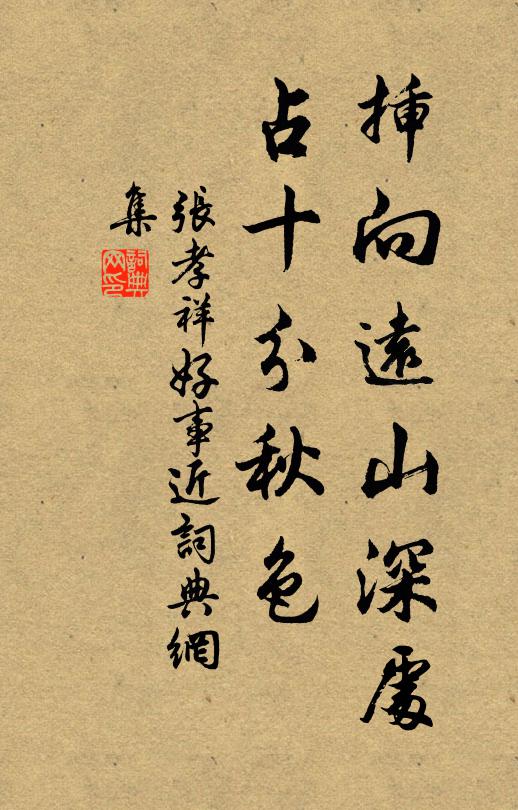 挿向遠山深處
占十分秋色
張孝祥好事近詞典網
集
詞典
网印